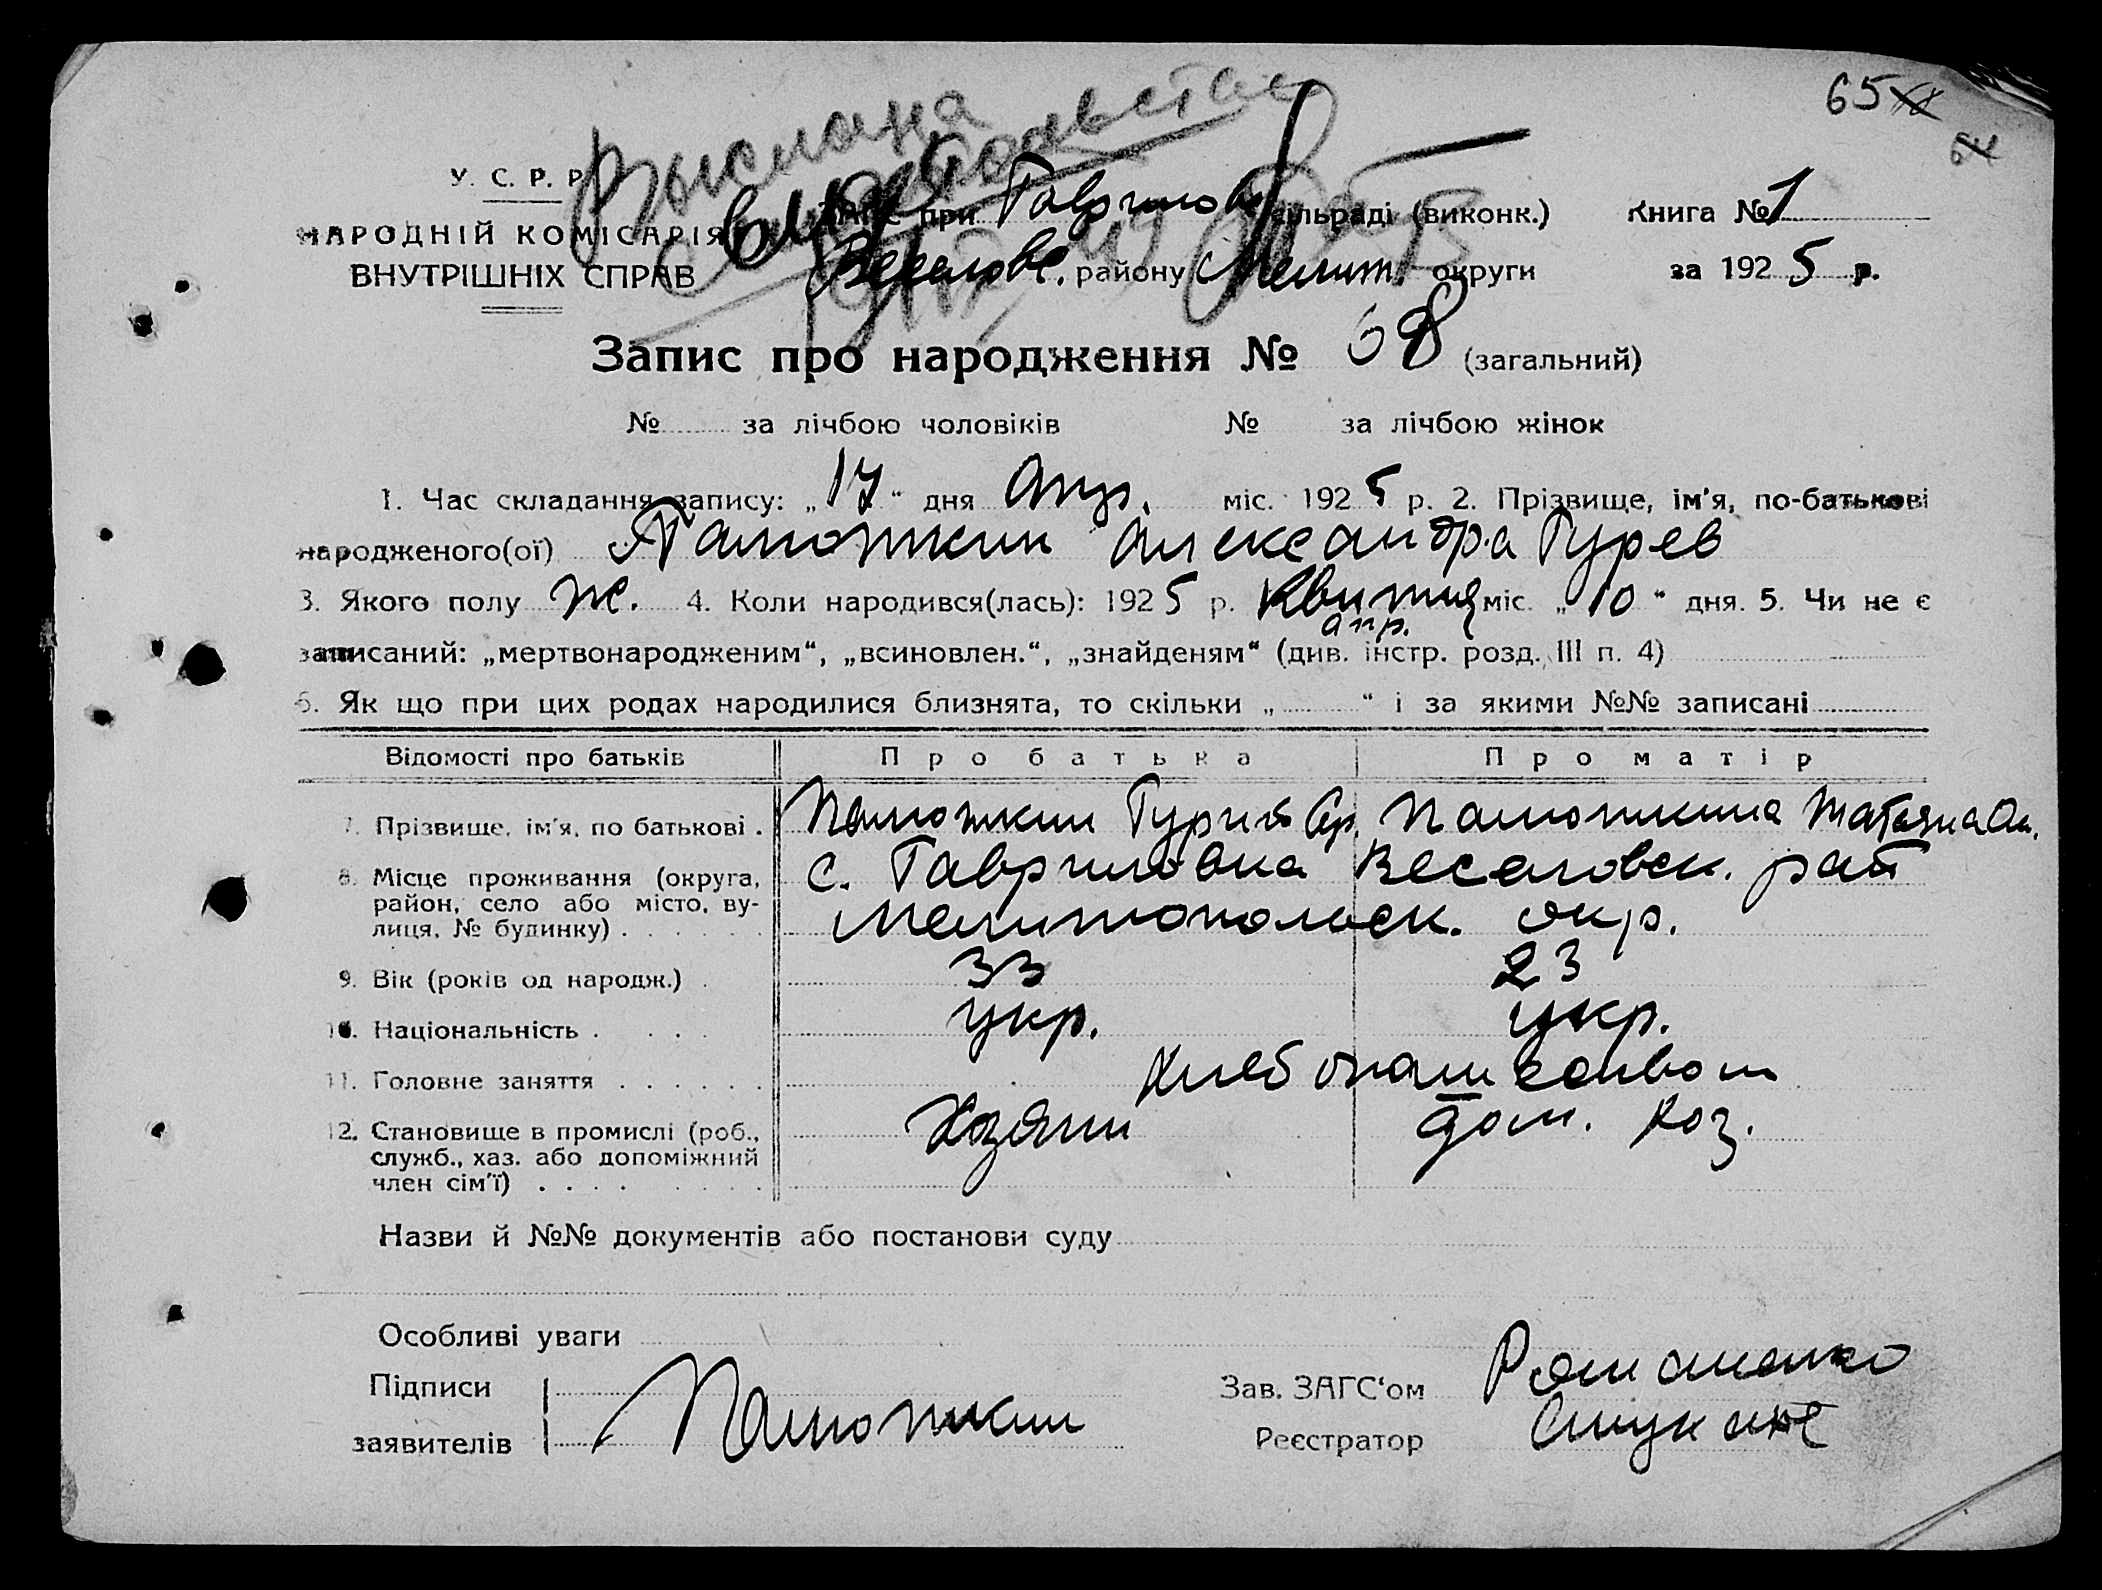 65
64
Выслана
У. С. Р. Р.
НАРОДНІЙ КОМІСАРІЯТ
ВНУТРІШНІХ СПРАВ
ЗАГС при Гаврилов сільраді (виконк.) Книга № 1
Веселовс. району Мелит. округи за 1925 р.
Запис про народження № 68 (загальний)
№ за лічбою чоловіків № за лічбою жінок
1. Час складання запису: „17“ дня Апр. міс. 1925 р. 2. Прізвище, ім'я, по-батькові
народженого(ої) Памошкин Александра Гурев
3. Якого полу ж. 4. Коли народився(лась): 1925 р. Квитня міс. „10“ дня. 5. Чи не є
апр.
записаний: „мертвонародженим“, „всиновлен.“, „знайденям“ (див. інстр. розд. III п. 4)
6. Як що при цих родах народилися близнята, то скільки „ “ і за якими №№ записані
Відомості про батьків Про батька Про матір
7. Прізвище, ім'я, по батькові . Памошкин Гурий Памошкина Татяна
8. Місце проживання (округа, район, село або місто, вулиця, № будинку) . с. Гавриловка Веселовск. рай
Мелитопольск. окр.
9. Вік (років од народж.) . 33 23
10. Національність . укр. укр.
11. Головне заняття . Хлебопашеством
12. Становище в промислі (роб., служб., хаз. або допоміжний член сім'ї) . Хозяин дом. хоз.
Назви й №№ документів або постанови суду
Особливі уваги
Підписи заявителів Памошкин
Зав. ЗАГС'ом Романенко
Реєстратор